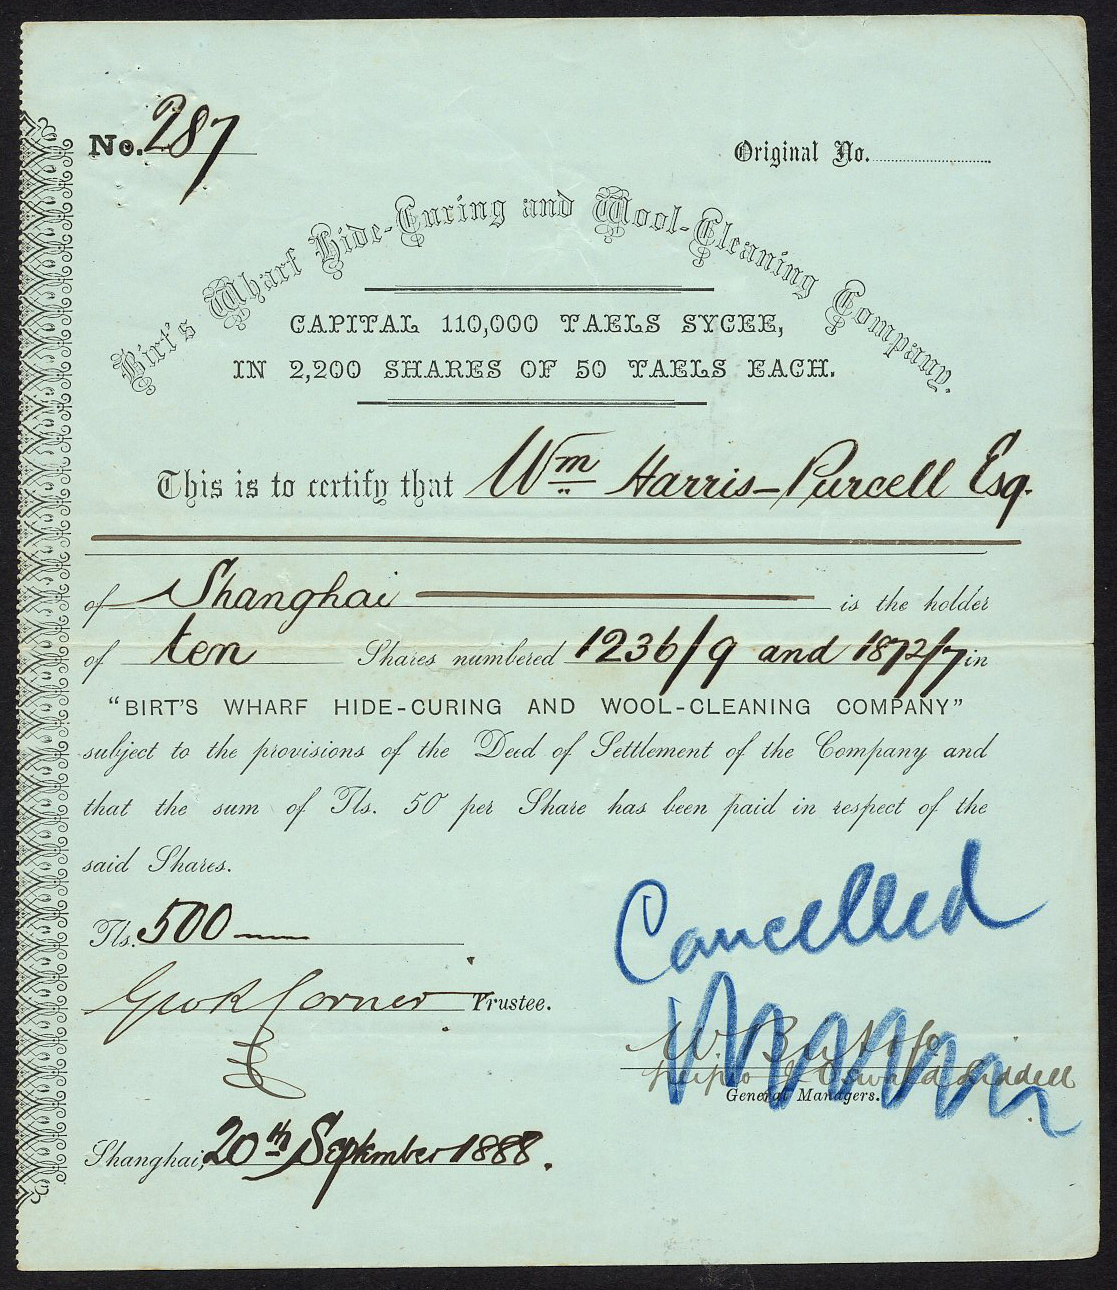 No. 287
Original No.
Birt's Wharf Hide-Curing and Wool-Cleaning Company.
CAPITAL 110,000 TAELS SYCEE,
IN 2,200 SHARES OF 50 TAELS EACH.
This is to certify that Wm Harris-Purcell Esq.
of Shanghai is the holder
of ten Shares numbered 1236/9 and 1872/7 in
"BIRT'S WHARF HIDE-CURING AND WOOL-CLEANING COMPANY"
subject to the provisions of the Deed of Settlement of the Company and
that the sum of Tls. 50 per Share has been paid in respect of the
said Shares.
Cancelled
Tls. 500
Geo R Corner Trustee.
W. Birt & Co
Oswald Liddell
General Managers.
Shanghai, 20th September 1888.